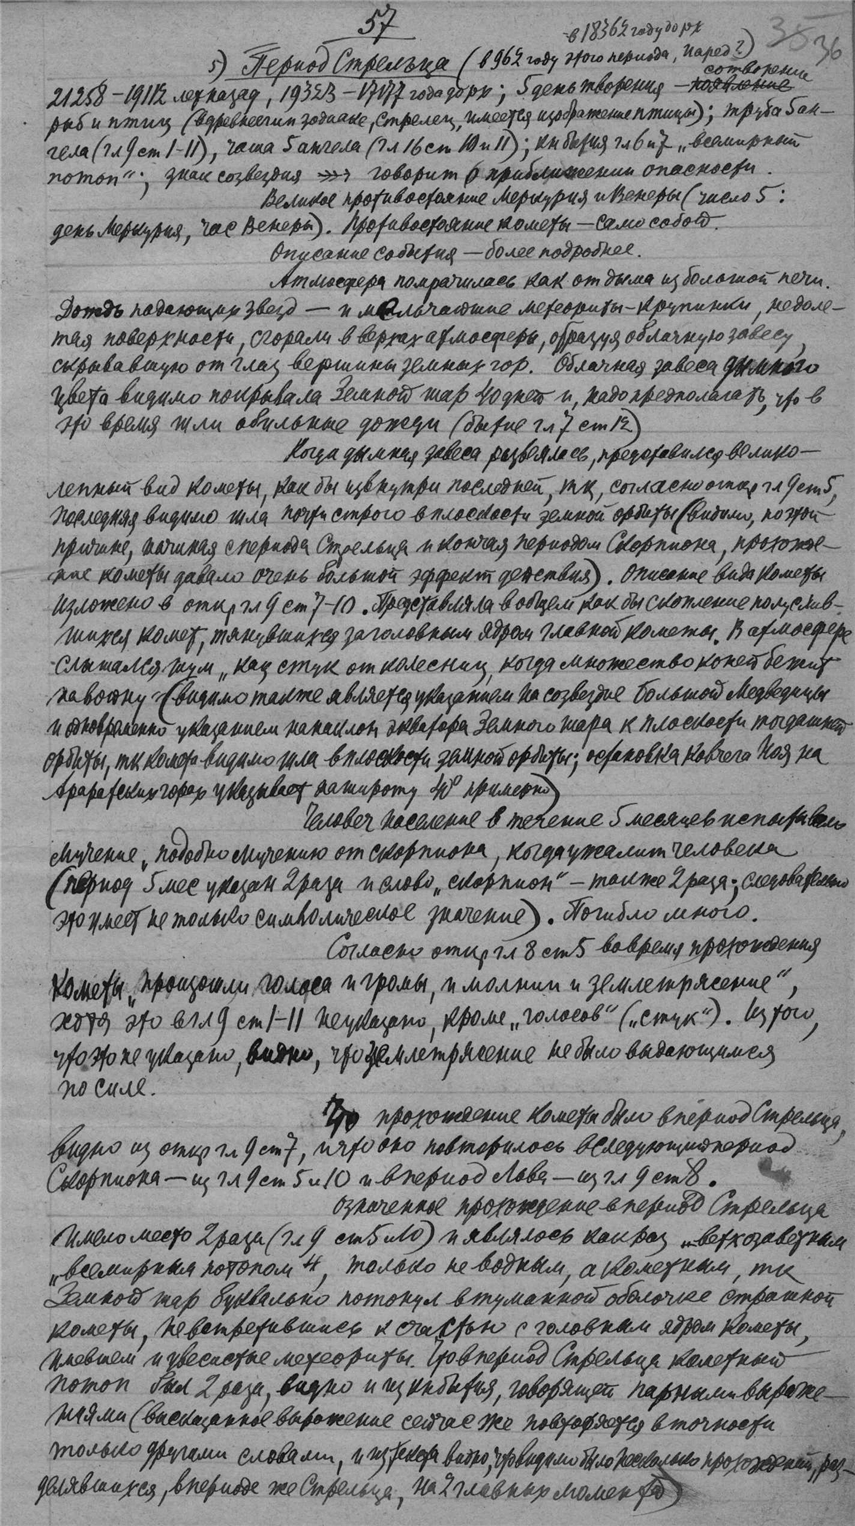 57
в 18362 году до рх
35 36
5) Период Стрельца (в 962 году этого периода, парад?)
сотворение
21258–19112 лет назад, 19323–17177 года до рх; 5 день творения – появление
рыб и птиц (в древнеегип зодиаке, стрелец, имеется изображение птицы); труба 5 ан-
гела (гл 9 ст 1–11), чаша 5 ангела (гл 16 ст 10 и 11); кн бытия гл 6 и 7 „всемирный
потоп“; знак созвездия говорит о приближении опасности.
Великое противостояние Меркурия и Венеры (число 5:
день Меркурия, час Венеры). Противостояние кометы – само собой.
Описание события – более подробнее.
Атмосфера помрачилась как от дыма из большой печи.
Дождь падающих звезд – и мельчайшие метеориты-крупинки, недоле-
тая поверхности, сгорали в верхах атмосферы, образуя облачную завесу,
скрывавшую от глаз вершины земных гор. Облачная завеса дымного
цвета видимо покрывала Земной шар 40 дней и, надо предполагать, что в
это время шли обильные дожди (бытие гл 7 ст 12)
Когда дымная завеса развеялась, представился велико-
лепный вид кометы, как бы изнутри последней, тк, согласно откр гл 9 ст 5,
последняя видимо шла почти строго в плоскости земной орбиты (видимо, по этой
причине, начиная с периода Стрельца и кончая периодом Скорпиона, прохожде-
ние кометы давало очень большой эффект действия). Описание вида кометы
изложено в откр гл 9 ст 7–10. Представляла в общем как бы скопление полуслив-
шихся комет, тянувшихся за головным ядром главной кометы. В атмосфере
слышался шум „как стук от колесниц, когда множество коней бежит
на войну“ (видимо также является указанием на созвездие Большой Медведицы
и одновременно указанием на наклон экватора Земного шара к плоскости тогдашней
орбиты, тк комета видимо шла в плоскости земной орбиты; остановка ковчега Ноя на
Араратских горах указывает на широту 40° примерно)
Человеч население в течение 5 месяцев испытывало
мучение „подобно мучению от скорпиона, когда ужалит человека
(период 5 мес указан 2 раза и слово „скорпион“ – также 2 раза; следовательно
это имеет не только символическое значение). Погибло много.
Согласно откр гл 8 ст 5 во время прохождения
кометы „произошли голоса и громы, и молнии и землетрясение“,
хотя это в гл 9 ст 1–11 не указано, кроме „голосов“ („стук“). Из того,
что это не указано, видно, что землетрясение не было выдающимся
по силе.
Что прохождение кометы было в период Стрельца,
видно из откр гл 9 ст 7, и что оно повторилось в следующий период
Скорпиона – из гл 9 ст 5 и 10 и в период Льва – из гл 9 ст 8.
Означенное прохождение в период Стрельца
имело место 2 раза (гл 9 ст 5 и 10) и являлось как раз „ветхозаветным
„всемирным потопом“, только не водным, а кометным, тк
Земной шар буквально потонул в туманной оболочке страшной
кометы, не встретившись к счастью с головным ядром кометы,
имевшем и увесистые метеориты. Что в период Стрельца кометный
потоп был 2 раза, видно и из кн бытия, говорящей парными выраже-
ниями (высказанное выражение сейчас же повторяется в точности
только другими словами, и из текста видно, что видимо было несколько прохождений, раз-
делявшихся, в периоде же Стрельца, на 2 главных момента)